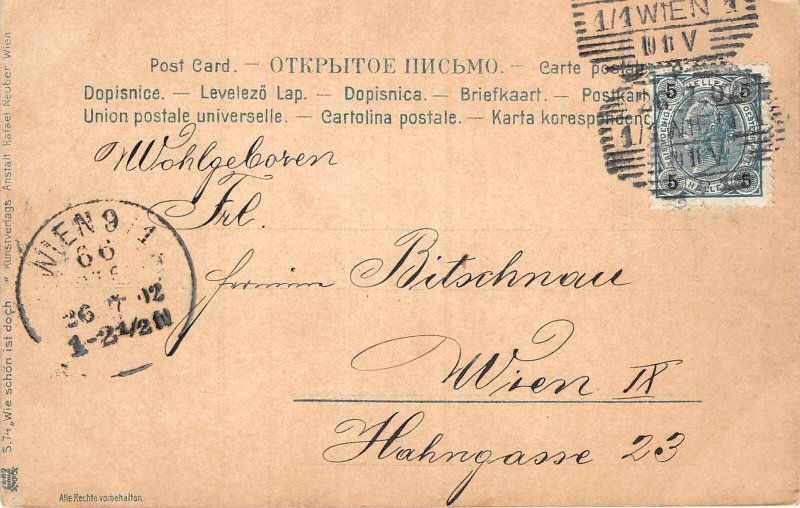 Post Card. — ОТКРЫТОЕ ПИСЬМО. — Carte postale
Dopisnice. — Levelező Lap. — Dopisnica. — Briefkaart. — Postkart
Union postale universelle. — Cartolina postale. — Karta korespondenc
1/1 WIEN 1
10 II V
5 5
5 HELLER 5
Wohlgeboren
Frl.
Hermine Bitschnau
Wien IX
Hahngasse 23
WIEN 9/1
66
26 7 02
1-2½N
S.74 „Wie schön ist doch “ Kunstverlags-Anstalt Rafael Neuber, Wien
Alle Rechte vorbehalten.